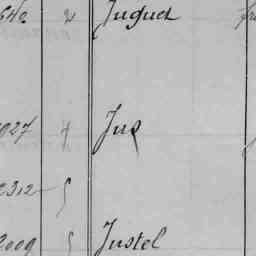 642 2 Juguet
927 4 Jus
2312 5
2009 5 Justel